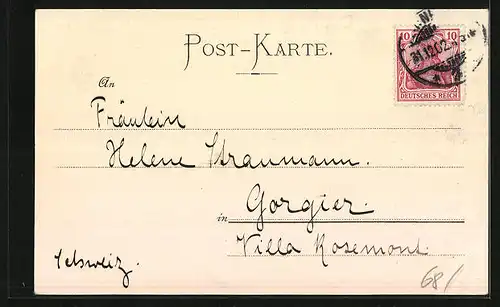 POST-KARTE.
10 10
DEUTSCHES REICH
31.12.02
An
Fräulein
Helene Straumann.
in Gorgier.
Villa Rosemont.
Schweiz.
68/